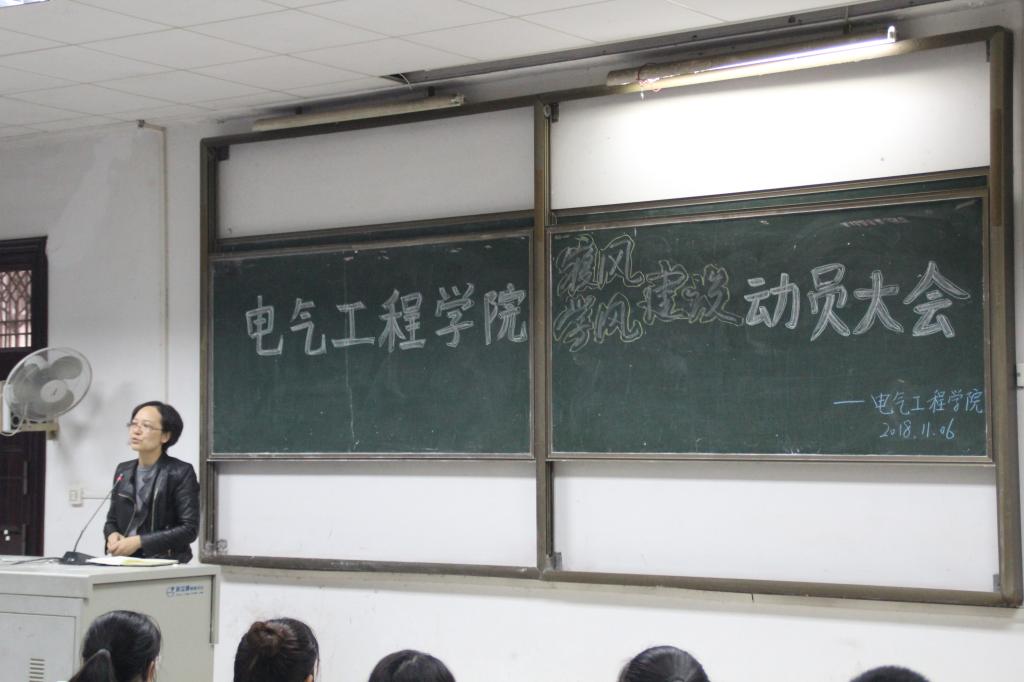 电气工程学院
寝风
学风
建设
动员大会
— 电气工程学院
2018.11.06